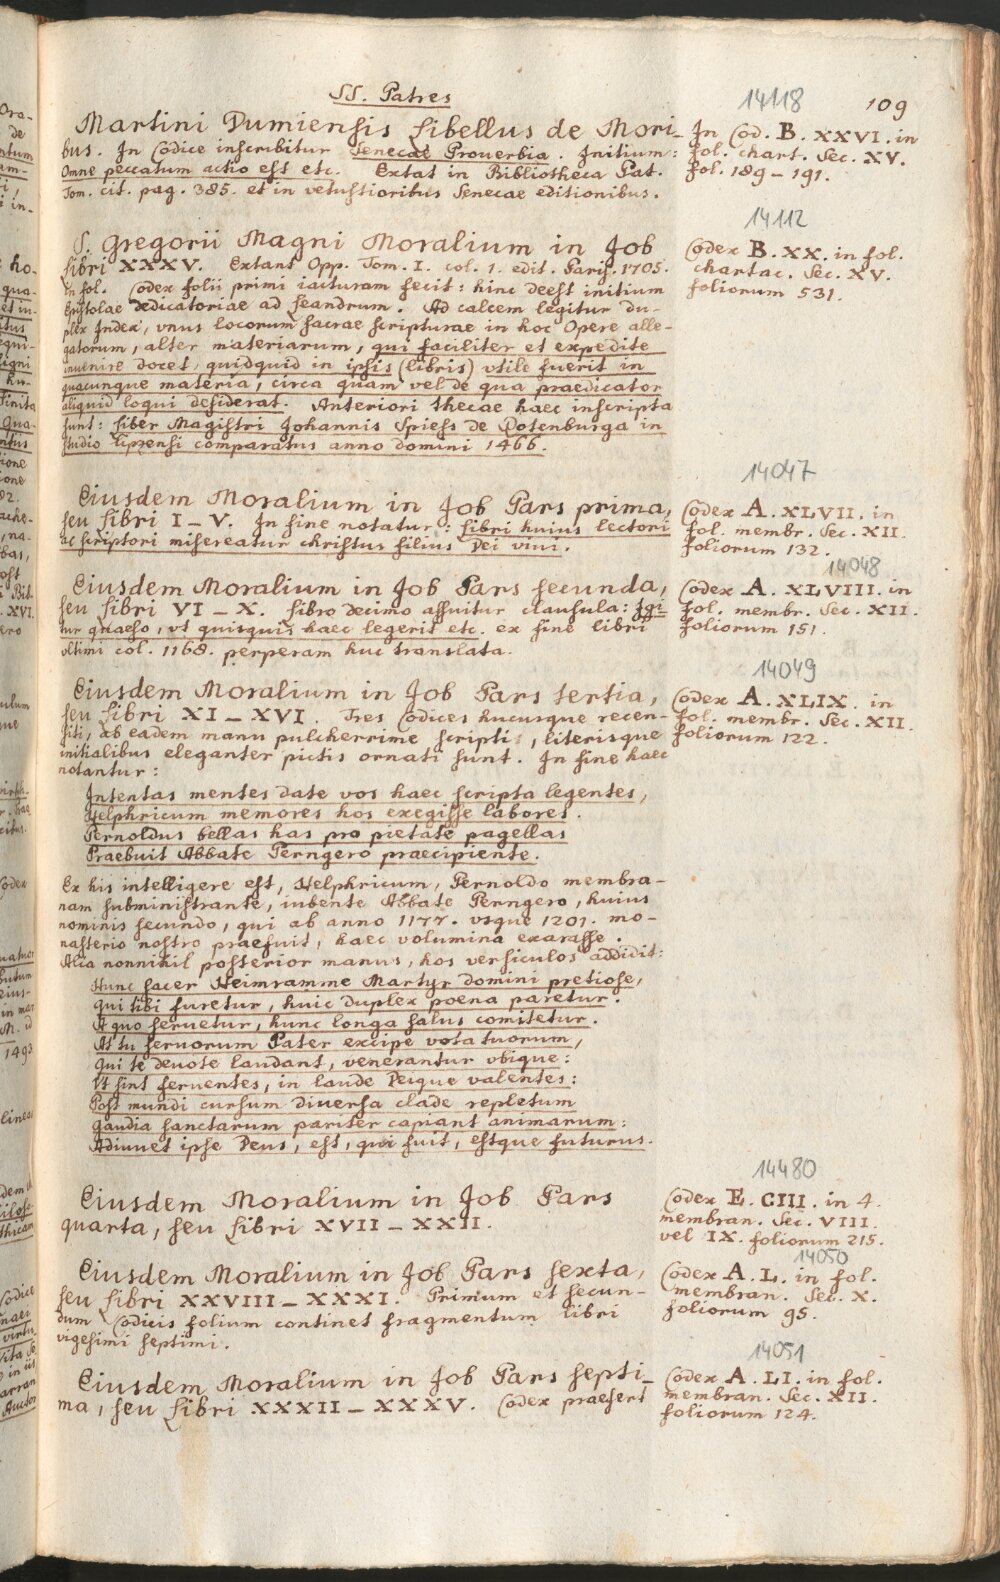 SS. Patres
109
Martini Dumiensis Libellus de Mori-
bus. In Codice inscribitur Senecae Prouerbia. Initium:
Omne peccatum actio est etc. Extat in Bibliotheca Pat.
Tom. cit. pag. 385. et in vetustioribus Senecae editionibus.
14118
In Cod. B. XXVI. in
fol. chart. Sec. XV.
fol. 189 - 191.
S. Gregorii Magni Moralium in Job
Libri XXXV. Extant Opp. Tom. I. col. 1. edit. Paris. 1705.
in fol. Codex folii primi iacturam fecit: hinc deest initium
Epistolae dedicatoriae ad Leandrum. Ad calcem legitur du-
plex Index, vnus locorum sacrae scripturae in hoc Opere alle-
gatorum, alter materiarum, qui faciliter et expedite
inuenire docet, quidquid in ipsis (libris) vtile fuerit in
quacunque materia, circa quam vel de qua praedicator
aliquid loqui desiderat. Anteriori thecae haec inscripta
sunt: Liber Magistri Johannis Spiess de Rotenburga in
studio Lipzensi comparatus anno domini 1466.
14112
Codex B. XX. in fol.
chartac. Sec. XV.
foliorum 531.
Eiusdem Moralium in Job Pars prima,
seu Libri I - V. In fine notatur: Libri huius lectori
ac scriptori misereatur christus filius Dei viui.
14047
Codex A. XLVII. in
fol. membr. Sec. XII.
foliorum 132.
Eiusdem Moralium in Job Pars secunda,
seu Libri VI - X. Libro decimo assuitur clausula: Igi-
tur quaeso, vt quisquis haec legerit etc. ex fine libri
vltimi col. 1168. perperam huc translata.
14048
Codex A. XLVIII. in
fol. membr. Sec. XII.
foliorum 151.
Eiusdem Moralium in Job Pars tertia,
seu Libri XI - XVI. Tres Codices hucusque recen-
siti, ab eadem manu pulcherrime scripti, literisque
initialibus eleganter pictis ornati sunt. In fine haec
notantur:
14049
Codex A. XLIX. in
fol. membr. Sec. XII.
foliorum 122.
Intentas mentes date vos haec scripta legentes,
Helphricum memores hos exegisse labores.
Pernoldus bellas has pro pietate pagellas
Praebuit Abbate Perngero praecipiente.
Ex his intelligere est, Helphricum, Pernoldo membra-
nam subministrante, iubente Abbate Perngero, huius
nominis secundo, qui ab anno 1177. vsque 1201. mo-
nasterio nostro praefuit, haec volumina exarasse.
Alia nonnihil posterior manus, hos versiculos addidit:
Hunc sacer Heimramme Martyr domini pretiose,
Qui tibi furetur, huic duplex poena paretur.
A quo seruetur, hunc longa salus comitetur.
At tu seruorum Pater excipe vota tuorum,
Qui te deuote laudant, venerantur vbique:
Vt sint feruentes, in laude Deique valentes:
Post mundi cursum diuersa clade repletum
Gaudia sanctarum pariter capiant animarum:
Adiuuet ipse Deus, est, qui fuit, estque futurus.
Eiusdem Moralium in Job Pars
quarta, seu Libri XVII - XXII.
14480
Codex E. CIII. in 4.
membran. Sec. VIII.
vel IX. foliorum 215.
Eiusdem Moralium in Job Pars sexta,
seu Libri XXVIII - XXXI. Primum et secun-
dum Codicis folium continet fragmentum libri
vigesimi septimi.
14050
Codex A. L. in fol.
membran. Sec. X.
foliorum 95.
Eiusdem Moralium in Job Pars septi-
ma, seu Libri XXXII - XXXV. Codex praefert
14051
Codex A. LI. in fol.
membran. Sec. XII.
foliorum 124.